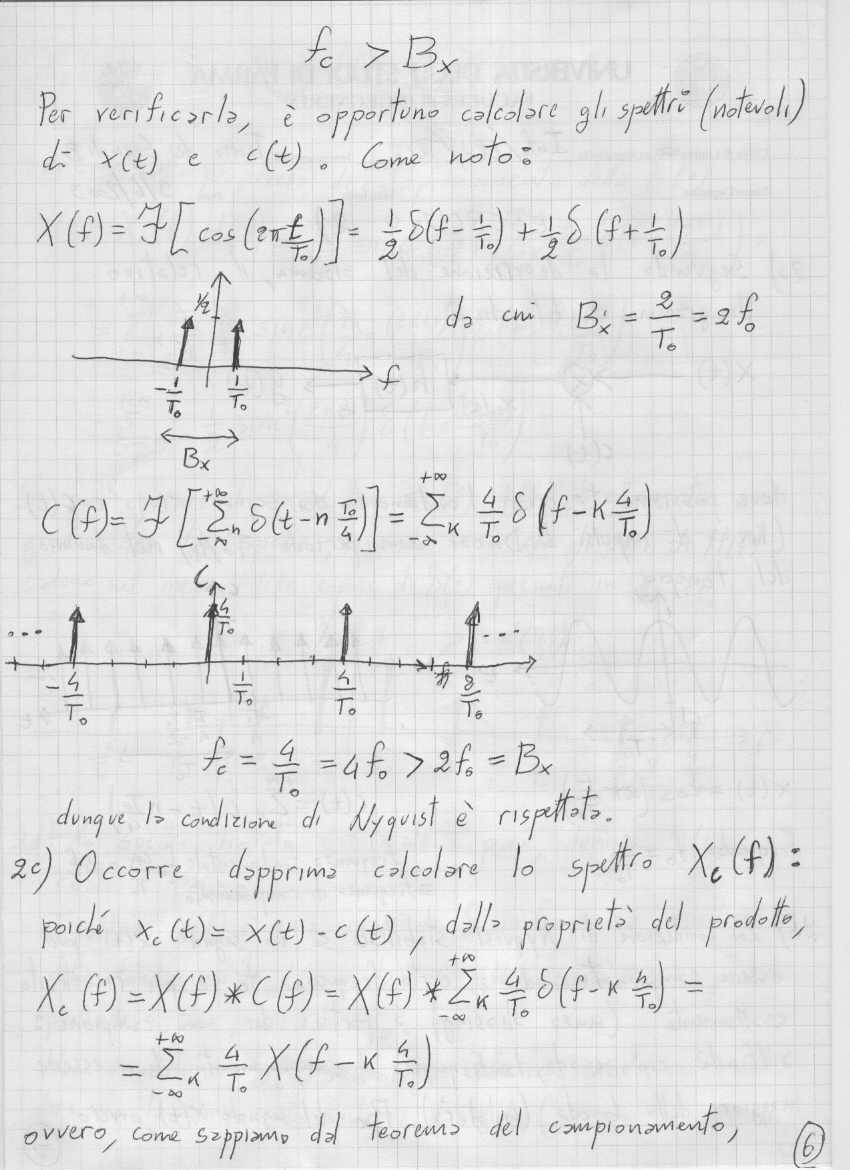 f_c > B_x
Per verificarla, è opportuno calcolare gli spettri (notevoli)
di x(t) e c(t). Come noto:
X(f) = ℱ[cos(2π t/T₀)] = 1/2 δ(f - 1/T₀) + 1/2 δ(f + 1/T₀)
1/2
da cui B_x = 2/T₀ = 2f₀
f
-1/T₀ 1/T₀
B_x
C(f) = ℱ[∑_{-∞}^{+∞}_n δ(t - n T₀/4)] = ∑_{-∞}^{+∞}_K 4/T₀ δ(f - K 4/T₀)
C
4/T₀
... ...
-4/T₀ 1/T₀ 4/T₀ f 8/T₀
f_c = 4/T₀ = 4f₀ > 2f₀ = B_x
dunque la condizione di Nyquist è rispettata.
2c) Occorre dapprima calcolare lo spettro X_c(f):
poiché x_c(t) = x(t) - c(t), dalla proprietà del prodotto,
X_c(f) = X(f) * C(f) = X(f) * ∑_{-∞}^{+∞}_K 4/T₀ δ(f - K 4/T₀) =
= ∑_{-∞}^{+∞}_K 4/T₀ X(f - K 4/T₀)
ovvero, come sappiamo dal teorema del campionamento,
6